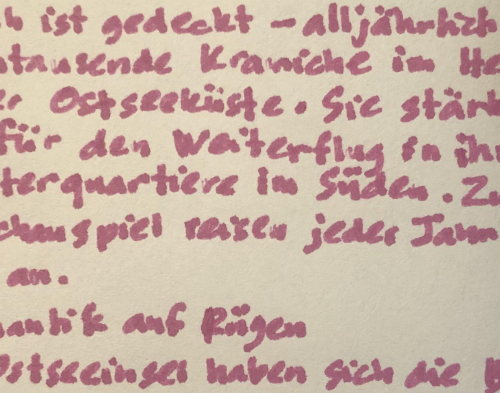 h ist gedeckt – alljährlich
ntausende Kraniche im He
er Ostseeküste. Sie stärk
für den Weiterflug in ihr
terquartiere im Süden. Zu
chauspiel reisen jedes Jahr
an.
mantik auf Rügen
Ostseeinsel haben sich die